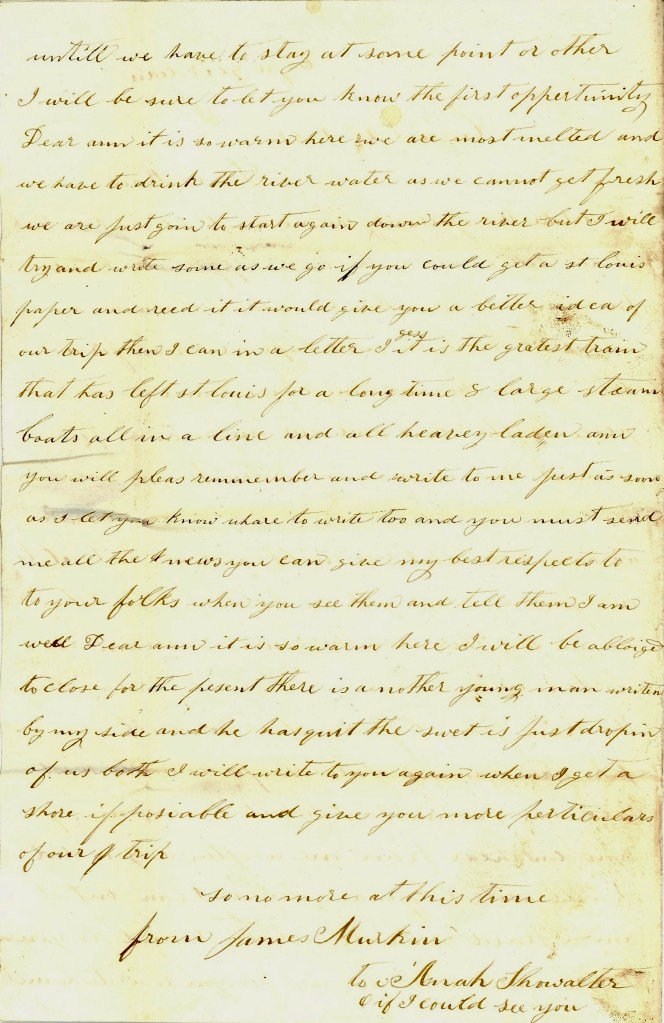 untill we have to stay at some point or other
I will be sure to let you know the first oppertunity
Dear ann it is so warm here we are most melted and
we have to drink the river water as we cannot get fresh
we are just goin to start again down the river but I will
try and write some as we go if you could get a st louis
paper and reed it it would give you a better idea of
our trip then I can in a letter I gess it is the gratest train
that has left st louis for a long time 8 large steam
boats all in a line and all heavey laden ann
you will pleas remmember and write to me just as soon
as I let you know whare to write too and you must send
me all the news you can give my best respects to
to your folks when you see them and tell them I am
well Dear ann it is so warm here I will be abloiged
to close for the pesent there is a nother young man writen
by my side and he has quit the swet is just dropin
of us both I will write to you again when I get a
shore if posiable and give you more perticulars
of our trip
so no more at this time
from James Murkin
to Anah Showalter
O if I could see you